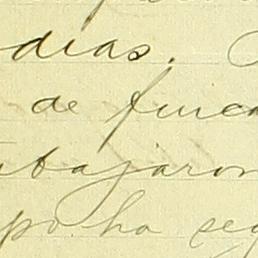 dias.
de finca
abajaron
po ha seg